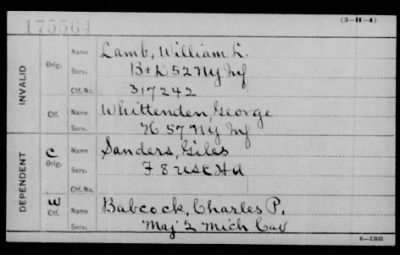 175564
(3-H-4)
INVALID
Orig.
Name Lamb, William L.
Serv. B & K 52 Ny Inf
Ctf. No. 317242
Ctf.
Name Whittenden, George
Serv. H 57 Ny Inf
DEPENDENT
C
Orig.
Name Sanders, Giles
Serv. F 8 USC HA
Ctf. No.
W
Ctf.
Name Babcock, Charles P.
Serv. Maj 2 Mich Cav
6-1303